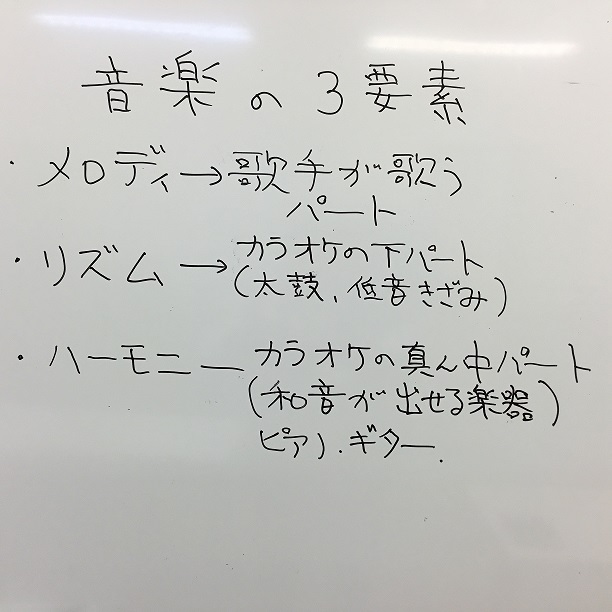 音楽の3要素
・メロディ→歌手が歌う
パート
・リズム→カラオケの下パート
(太鼓、低音きざみ)
・ハーモニーカラオケの真ん中パート
(和音が出せる楽器)
ピアノ.ギター.